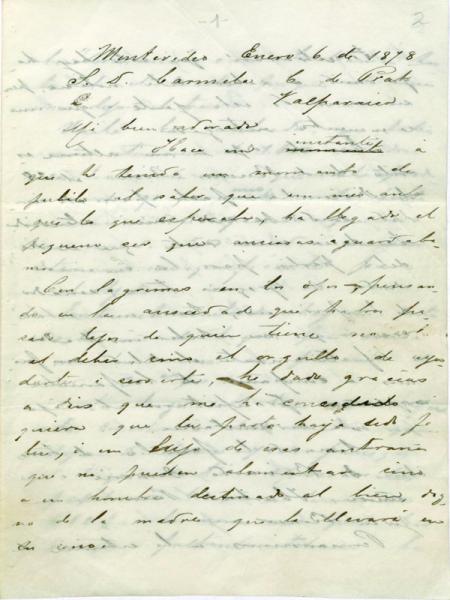 -1-
2
Montevideo Enero 6 de 1878
S. D. Carmela C. de Prat
Valparaiso
Mi bien adorado
Hace un instante a
que he tenido un momento de
jubilo al saber que
a que lo que esperaba, ha llegado el
pequeno ser que ansiosos aguardaba
mos
Con lagrimas en los ojos y pensan
do en la ansiedad que habras pa
sado lejos de quien tiene
el deber como el orgullo de ayu
darte i servirte, he dado gracias
a dios que me ha concedido
quiera que tu parto haya sido fe
liz, i un hijo de esas
que no pueden sino
a un hombre destinado al bien dig
no de la madre que lo llevará en
su seno.